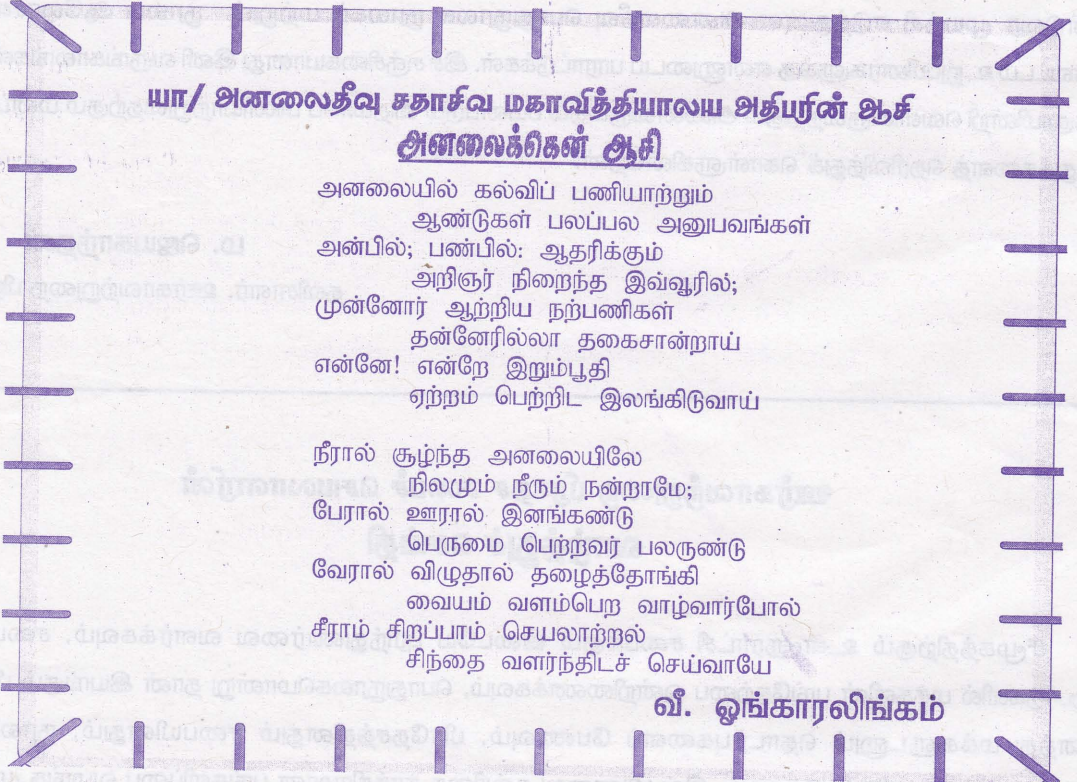 யா/ அனலைதீவு சதாசிவ மகாவித்தியாலய அதிபரின் ஆசி
அனலைக்கென் ஆசி
அனலையில் கல்விப் பணியாற்றும்
ஆண்டுகள் பலப்பல அனுபவங்கள்
அன்பில்; பண்பில்: ஆதரிக்கும்
அறிஞர் நிறைந்த இவ்வூரில;
முன்னோர் ஆற்றிய நற்பணிகள்
தன்னேரில்லா தகைசான்றாய்
என்னே! என்றே இறும்பூதி
ஏற்றம் பெற்றிட இலங்கிடுவாய்
நீரால் சூழ்ந்த அனலையிலே
நிலமும் நீரும் நன்றாமே;
பேரால் ஊரால் இனங்கண்டு
பெருமை பெற்றவர் பலருண்டு
வேரால் விழுதால் தழைத்தோங்கி
வையம் வளம்பெற வாழ்வார்போல்
சீராம் சிறப்பாம் செயலாற்றல்
சிந்தை வளர்ந்திடச் செய்வாயே
வீ. ஓங்காரலிங்கம்